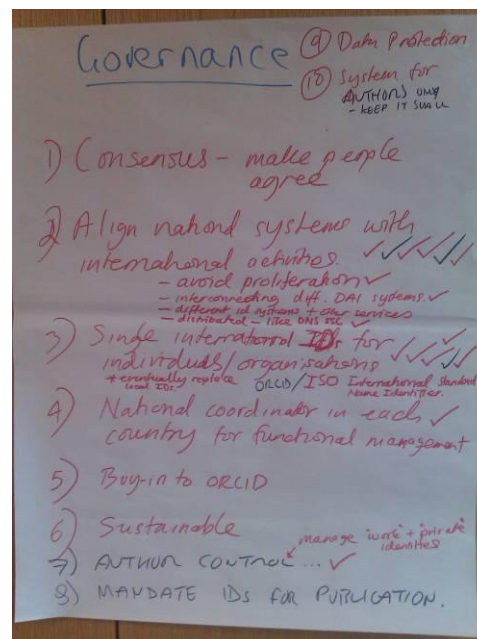 Governance
9 Data Protection
10 System for
AUTHORS ONLY
- KEEP IT SMALL
1) Consensus - make people
agree
2) Align national systems with
international activities. ✓✓✓✓✓✓
- avoid proliferation ✓
- interconnecting diff. DAI systems. ✓
- different id systems + other services
- distributed - like DNS ✓
3) Single international IDs for ✓
individuals/organisations ✓✓✓✓✓
+ eventually replace local IDs ✓
ORCID/ISO International Standard
Name Identifier.
4) National coordinator in each ✓
country for functional management
5) Buy-in to ORCID
6) Sustainable
manage work + private
identities
7) AUTHOR CONTROL ... ✓
8) MANDATE IDs FOR PUBLICATION.